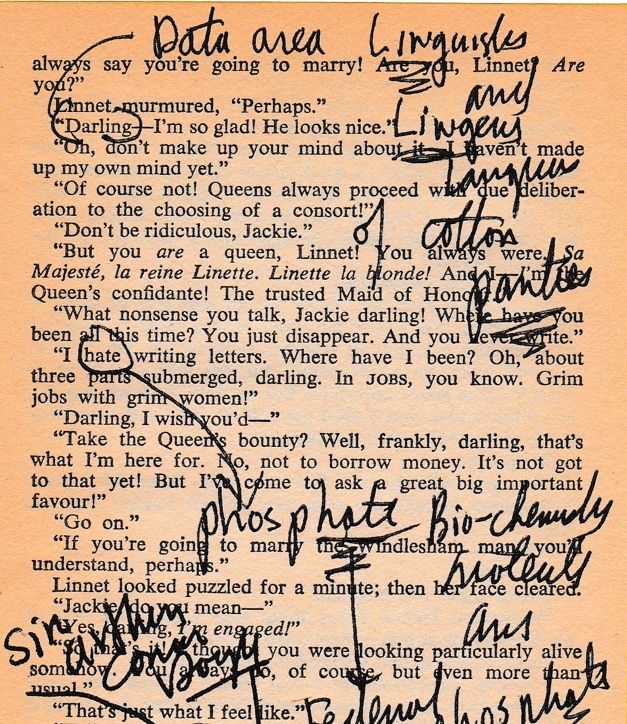 Data area Linguists
always say you're going to marry! Are you, Linnet? Are
you?"
and
Linnet murmured, "Perhaps."
"Darling—I'm so glad! He looks nice."
"Oh, don't make up your mind about it. I haven't made
up my own mind yet."
"Of course not! Queens always proceed with due deliber-
ation to the choosing of a consort!"
"Don't be ridiculous, Jackie."
of cotton
"But you are a queen, Linnet! You always were. Sa
Majesté, la reine Linette. Linette la blonde! And I—I'm the
panties
Queen's confidante! The trusted Maid of Honour
"What nonsense you talk, Jackie darling! Where have you
been all this time? You just disappear. And you never write."
"I hate writing letters. Where have I been? Oh, about
three parts submerged, darling. In JOBS, you know. Grim
jobs with grim women!"
"Darling, I wish you'd—"
"Take the Queen's bounty? Well, frankly, darling, that's
what I'm here for. No, not to borrow money. It's not got
to that yet! But I've come to ask a great big important
favour!"
"Go on."
phosphate Bio-chemists
"If you're going to marry the Windlesham man, you'll
understand, perhaps."
Linnet looked puzzled for a minute; then her face cleared.
"Jackie, do you mean—"
"Yes, darling, I'm engaged!"
"So that's it! I thought you were looking particularly alive
somehow. You always do, of course, but even more than
usual."
"That's just what I feel like."
Federal phosphate